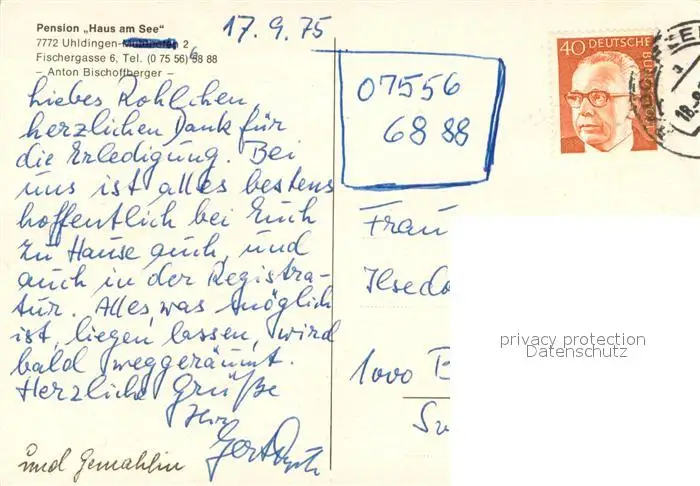 17.9.75
Pension „Haus am See"
7772 Uhldingen- 2
Fischergasse 6, Tel. (0 75 56) 68 88
– Anton Bischoffberger –
Liebes Kohlchen,
herzlichen Dank für
die Erledigung. Bei
uns ist alles bestens
hoffentlich bei Euch
zu Hause auch, und
auch in der Registra-
tur. Alles, was möglich
ist, liegen lassen, wird
bald weggeräumt.
Herzliche Grüße
Ihr
Gert
und Gemahlin
07556
68 88
40 DEUTSCHE
BUNDESPOST
Frau
Ilsedo
1000 B
privacy protection
Datenschutz